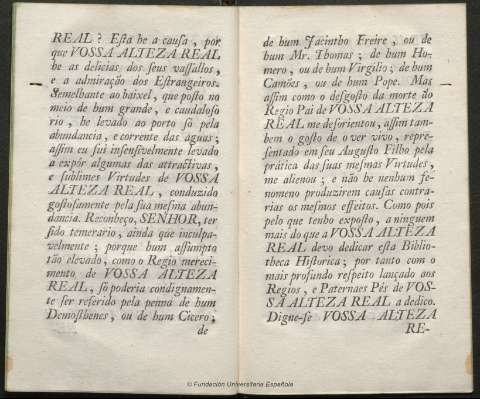 REAL ? Eſta he a cauſa , por
que VOSSA ALTEZA REAL
he as delicias dos ſeus vaſſallos,
e a admiração dos Eſtrangeiros.
Semelhante ao baixel, que poſto no
meio de hum grande, e caudaloſo
rio, he levado ao porto ſó pela
abundancia, e corrente das aguas;
aſſim eu fui inſenſivelmente levado
a expôr algumas das attractivas,
e ſublimes Virtudes de VOSSA
ALTEZA REAL, conduzido
goſtoſamente pela ſua meſma abun-
dancia. Reconheço, SENHOR, ter
ſido temerario, ainda que inculpa-
velmente; porque hum aſſumpto
tão elevado, como o Regio mereci-
mento de VOSSA ALTEZA
REAL, ſó poderia condignamen-
te ſer referido pela penna de hum
Demoſthenes, ou de hum Cicero;
de
de hum Jacintho Freire, ou de
hum Mr. Thomas; de hum Ho-
mero, ou de hum Virgilio; de hum
Camões, ou de hum Pope. Mas
aſſim como o deſgoſto da morte do
Regio Pai de VOSSA ALTEZA
REAL me deſorientou, aſſim tam-
bem o goſto de o ver vivo, repre-
ſentado em ſeu Auguſto Filho pela
prática das ſuas meſmas Virtudes,
me alienou; e não he nenhum fe-
nomeno produzirem cauſas contra-
rias os meſmos effeitos. Como pois
pelo que tenho expoſto, a ninguem
mais do que a VOSSA ALTEZA
REAL devo dedicar eſta Biblio-
theca Hiſtorica; por tanto com o
mais profundo reſpeito lançado aos
Regios, e Paternaes Pés de VOS-
SA ALTEZA REAL a dedico.
Digne-ſe VOSSA ALTEZA
RE-
© Fundación Universitaria Española